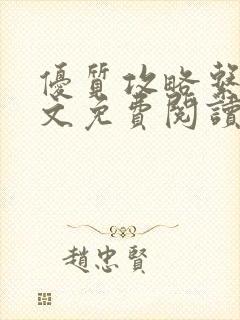 優質攻略系
文免費閱讀
趙忠賢